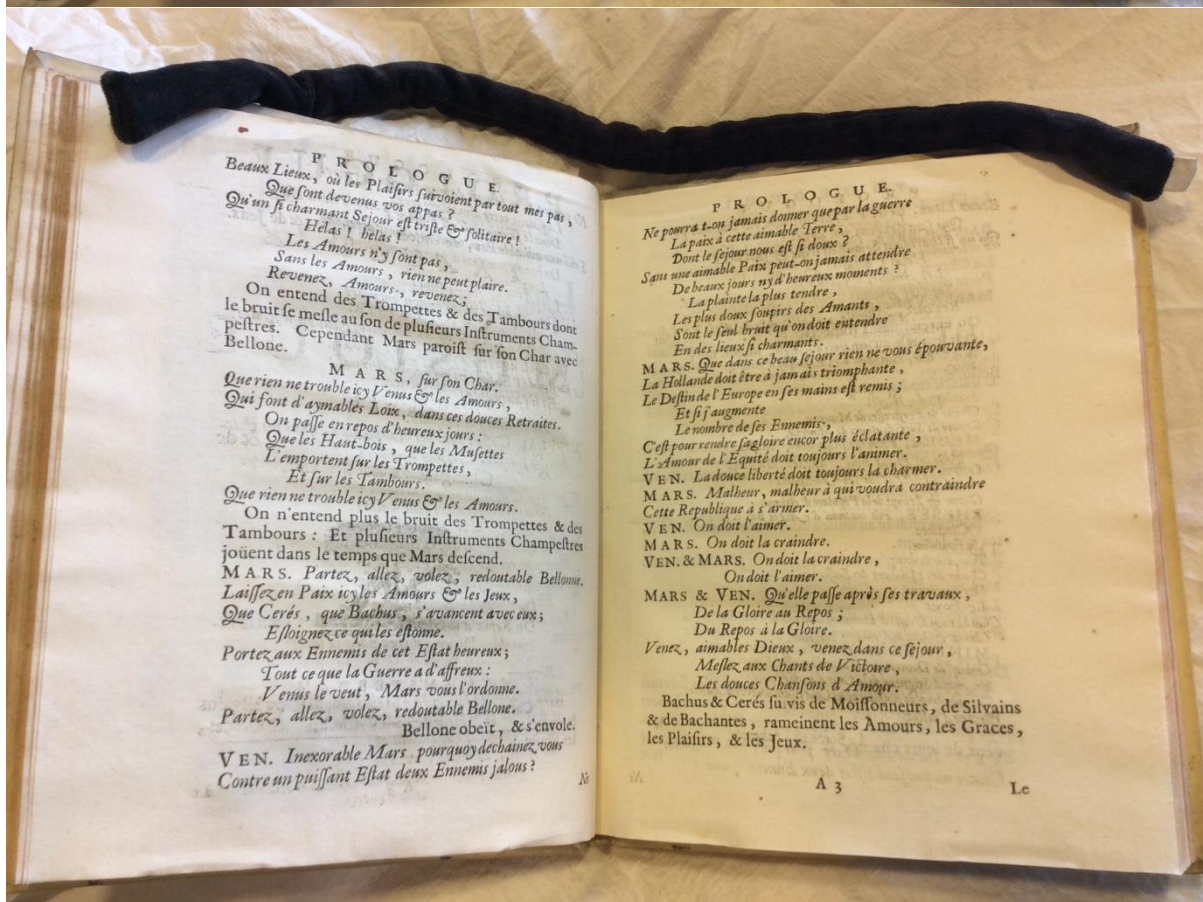 PROLOGUE.
Beaux Lieux, où les Plaiſirs ſuivoient par tout mes pas,
Que ſont devenus vos appas ?
Qu'un ſi charmant Sejour eſt triſte & ſolitaire !
Helas ! helas !
Les Amours n'y ſont pas,
Sans les Amours, rien ne peut plaire.
Revenez, Amours, revenez;
On entend des Trompettes & des Tambours dont
le bruit ſe meſle au ſon de pluſieurs Inſtruments Cham-
peſtres. Cependant Mars paroiſt ſur ſon Char avec
Bellone.
MARS, ſur ſon Char.
Que rien ne trouble icy Venus & les Amours,
Qui font d'aymables Loix, dans ces douces Retraites.
On paſſe en repos d'heureux jours :
Que les Haut-bois, que les Muſettes
L'emportent ſur les Trompettes,
Et ſur les Tambours.
Que rien ne trouble icy Venus & les Amours.
On n'entend plus le bruit des Trompettes & des
Tambours : Et pluſieurs Inſtruments Champeſtres
joüent dans le temps que Mars deſcend.
MARS. Partez, allez, volez, redoutable Bellonne.
Laiſſez en Paix icy les Amours & les Jeux,
Que Cerés, que Bachus, s'avancent avec eux;
Eſloignez ce qui les eſtonne.
Portez aux Ennemis de cet Eſtat heureux;
Tout ce que la Guerre a d'affreux :
Venus le veut, Mars vous l'ordonne.
Partez, allez, volez, redoutable Bellone.
Bellone obeït, & s'envole.
VEN. Inexorable Mars, pourquoy dechainez vous
Contre un puiſſant Eſtat deux Ennemis jalous ?
Ne
PROLOGUE.
Ne pourra t-on jamais donner que par la guerre
La paix à cette aimable Terre,
Dont le ſejour nous eſt ſi doux ?
Sans une aimable Paix peut-on jamais attendre
De beaux jours ny d'heureux moments ?
La plainte la plus tendre,
Les plus doux ſoupirs des Amants,
Sont le ſeul bruit qu'on doit entendre
En des lieux ſi charmants.
MARS. Que dans ce beau ſejour rien ne vous épouvante,
La Hollande doit être à jamais triomphante,
Le Deſtin de l'Europe en ſes mains eſt remis ;
Et ſi j'augmente
Le nombre de ſes Ennemis,
C'eſt pour rendre ſa gloire encor plus éclatante,
L'Amour de l'Equité doit toujours l'animer.
VEN. La douce liberté doit toujours la charmer.
MARS. Malheur, malheur à qui voudra contraindre
Cette Republique à s'armer.
VEN. On doit l'aimer.
MARS. On doit la craindre.
VEN. & MARS. On doit la craindre,
On doit l'aimer.
MARS & VEN. Qu'elle paſſe après ſes travaux,
De la Gloire au Repos ;
Du Repos à la Gloire.
Venez, aimables Dieux, venez dans ce ſejour,
Meſlez aux Chants de Victoire,
Les douces Chanſons d'Amour.
Bachus & Cerés ſuivis de Moiſſonneurs, de Silvains
& de Bachantes, rameinent les Amours, les Graces,
les Plaiſirs, & les Jeux.
A 3
Le